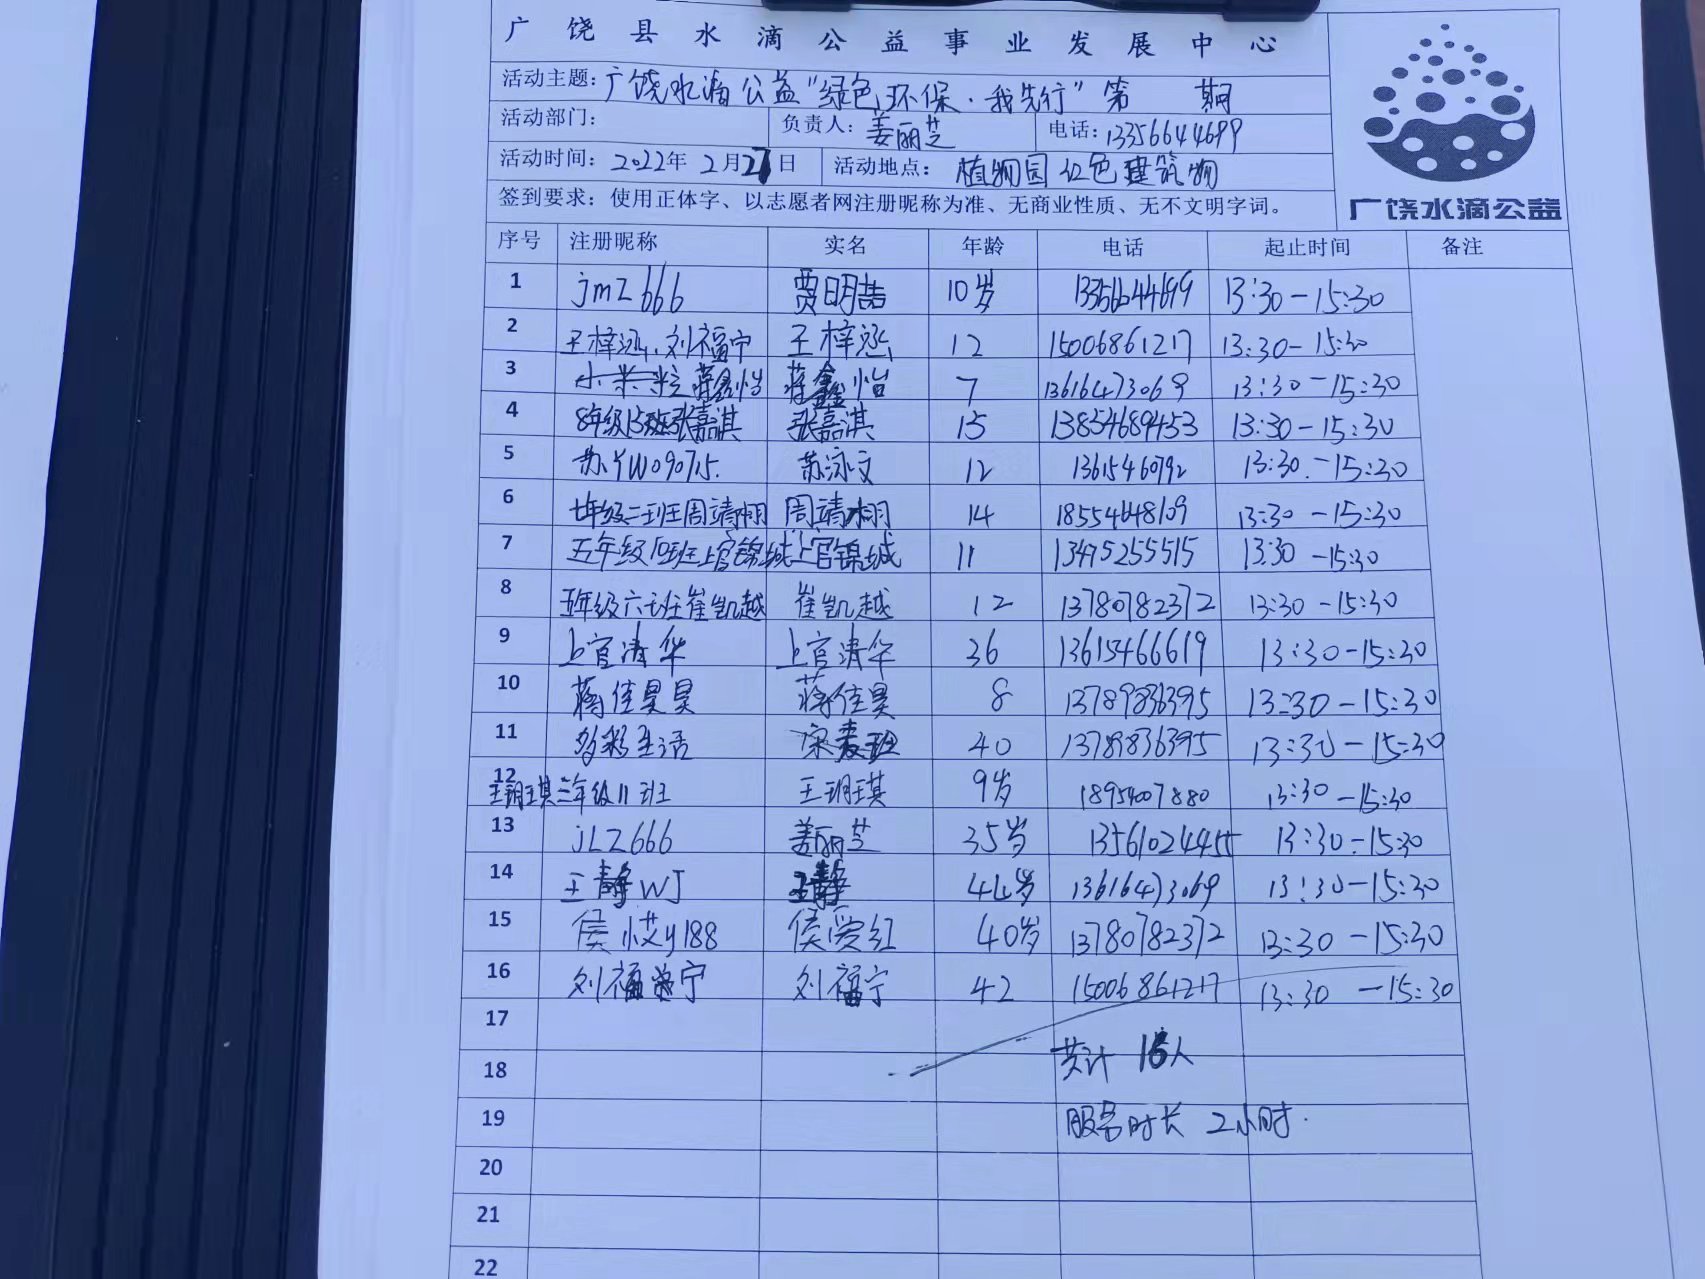 广饶县水滴公益事业发展中心
活动主题：广饶水滴公益“绿色环保·我先行”第 期
活动部门： 负责人：姜丽芝 电话：13356644699
活动时间：2022年2月27日 活动地点：植物园红色建筑物
签到要求：使用正体字、以志愿者网注册昵称为准、无商业性质、无不文明字词。
广饶水滴公益
序号 注册昵称 实名 年龄 电话 起止时间 备注
1 jmz666 贾明喆 10岁 13356644699 13:30-15:30
2 王梓涵、刘福宁 王梓涵 12 15006861217 13:30-15:30
3 蒋鑫怡 蒋鑫怡 7 13616473069 13:30-15:30
4 8年级15班张嘉淇 张嘉淇 15 13854689453 13:30-15:30
5 苏YW090715. 苏泳文 12 13615460792 13:30-15:30
6 七年级二班周靖栩 周靖栩 14 18554648109 13:30-15:30
7 五年级10班上官锦城 上官锦城 11 13475255515 13:30-15:30
8 五年级六班崔凯越 崔凯越 12 13780782372 13:30-15:30
9 上官清华 上官清华 36 13615466619 13:30-15:30
10 蒋佳昊昊 蒋佳昊 8 13789836395 13:30-15:30
11 多彩生活 40 13789836395 13:30-15:30
12 王玥琪三年级11班 王玥琪 9岁 18954007880 13:30-15:30
13 jLZ666 姜丽芝 35岁 13561024455 13:30-15:30
14 王静WJ 王静 44岁 13616473069 13:30-15:30
15 侯y188 侯爱红 40岁 13780782372 13:30-15:30
16 刘福宁 刘福宁 42 15006861217 13:30-15:30
17
18 共计 16人
19 服务时长 2小时.
20
21
22